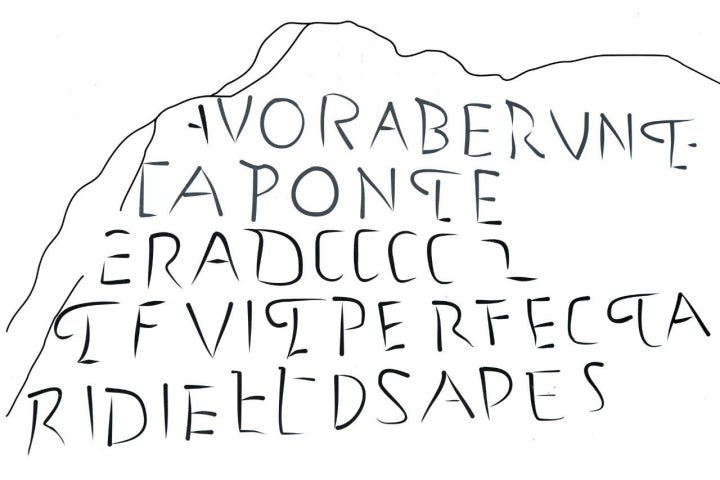 AVORABERVNT·
TAPONTE
ERADCCCC L
TFVITPERFECTA
RIDIEKLDSAPES